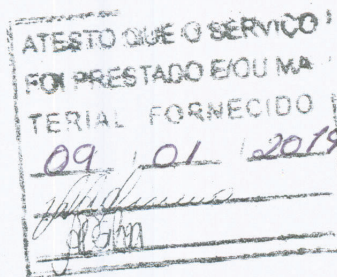 ATESTO QUE O SERVIÇO
FOI PRESTADO E/OU MA
TERIAL FORNECIDO
09 / 01 / 2019